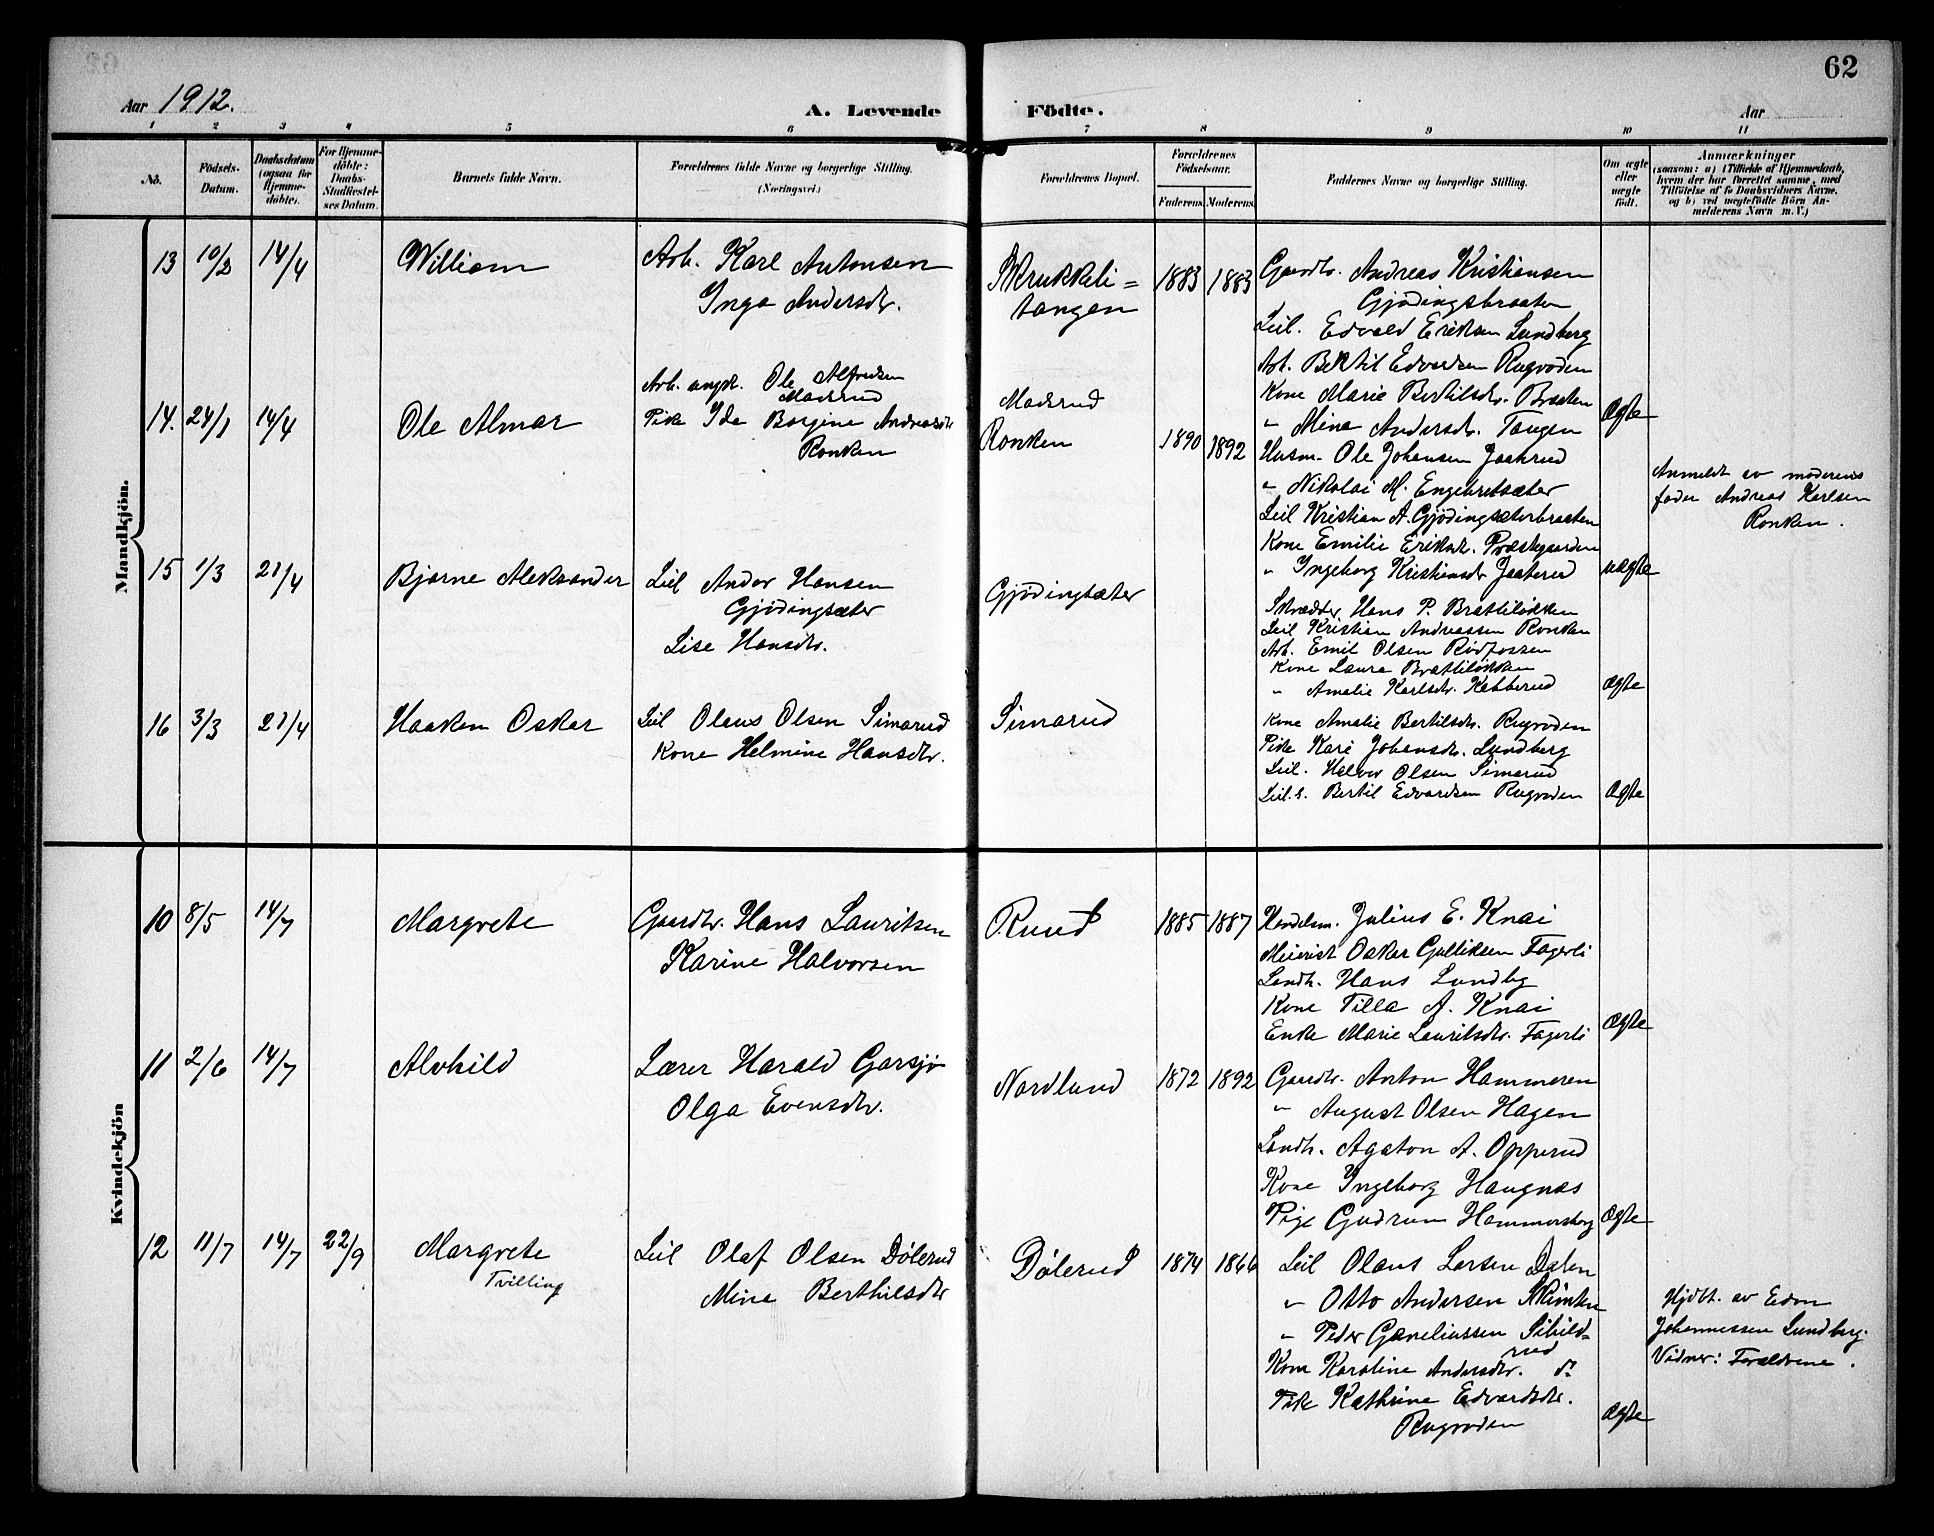 62
Aar 1912.
A. Levende Födte.
Aar
1 2 3 4 5 6 7 8 9 10 11
No.
Födsels-
Datum.
Daabsdatum
(ogsaa for
Hjemme-
döbte).
For Hjemme-
döbte:
Daabs-
Stadfæstel-
ses Datum.
Barnets fulde Navn.
Forældrenes fulde Navne og borgerlige Stilling.
(Næringsvei.)
Forældrenes Bopæl.
Forældrenes
Födselsaar.
Faderens Moderens
Faddernes Navne og borgerlige Stilling.
Om ægte
eller
uægte
födt.
Anmærkninger
(saasom: a) i Tilfælde af Hjemmedaab,
hvem der har forrettet samme, med
Tilföielse af to Daabsvidners Navne.
og b) ved uægtefödte Börn An-
melderens Navn m. V.)
Mandkjön.
13 10/2 14/4 William
Arb. Karl Antonsen
Inga Andersdtr.
Skrukkeli=
tangen
1883 1883
Gaardbr. Andreas Kristiansen
Gjødingsbraaten
Leil. Edvald Eriksen Lundberg
Arb. Bertil Edvardsen Rugvoden
Kone Marie Bertilsdtr. Braaten
" Mina Andersdtr. Tangen
Ægte
14. 24/1 14/4 Ole Almar
Arb. angiv. Ole Alfredsen
Maderud
Pike Ida Borgine Andreasdtr
Ronken
Maderud
Ronken
1890 1892
Husm. Ole Johansen Jaahrud
" Nikolai M. Engebretsæter
Leil Kristian A. Gjødingsæterbraaten
Kone Emilie Eriksdtr. Præstegaarden
" Ingeborg Kristiansdtr Jaaterud
uægte
Anmeldt av moderens
fader Andreas Karlsen
Ronken.
15 1/3 21/4 Bjarne Aleksander
Leil Andor Hansen
Gjødingsæter
Lise Hansdtr.
Gjødingsæter
Skrædder Hans P. Brattiløkken
Leil Kristian Andreassen Ronken
Arb. Emil Olsen Rødfossen
Kone Laura Brattiløkken
" Amalie Karlsdtr. Kabberud
Ægte
16 3/3 21/4 Haakon Oskar
Leil Olaus Olsen Simarud
Kone Helmine Hansdtr.
Simarud
Kone Amalie Bertilsdtr. Rugvoden
Pike Kari Johansdtr. Lundberg
Leil. Halvor Olsen Simarud
Leil.s. Bertil Edvardsen Rugvoden
Ægte
Kvindekjön
10 8/5 14/7 Margrete
Gaardbr. Hans Lauritsen
Karine Halvorsen
Ruud
1885 1887
Handelsm. Julius E. Knai
Meierist Oskar Gulliksen Fagerli
Landh. Hans Lundby
Kone Tilla A. Knai
Enke Marie Lauritsdtr. Fagerli
Ægte
11 2/6 14/7 Alvhild
Lærer Harald Garsjø
Olga Evensdtr.
Nordlund
1872 1892
Gaardbr. Anton Hammeren
" August Olsen Hagen
Landh. Agaton A. Opperud
Kone Ingeborg Haugnæs
Pige Gudrun Hammersborg
Ægte
12 11/7 14/7 22/9 Margrete
Tvilling
Leil Olaf Olsen Dølerud
Mina Berthilsdtr
Dølerud
1874 1866
Leil Olaus Larsen Dalen
" Otto Andersen
" Peder Corneliussen Sibild-
rud
Kone Karoline Andersdtr. do
Pike Kathrine Edvardsdtr.
Rugvoden
Ægte
Hjdbt. av Edon
Johannessen Lundberg.
Vidner: Forældrene.